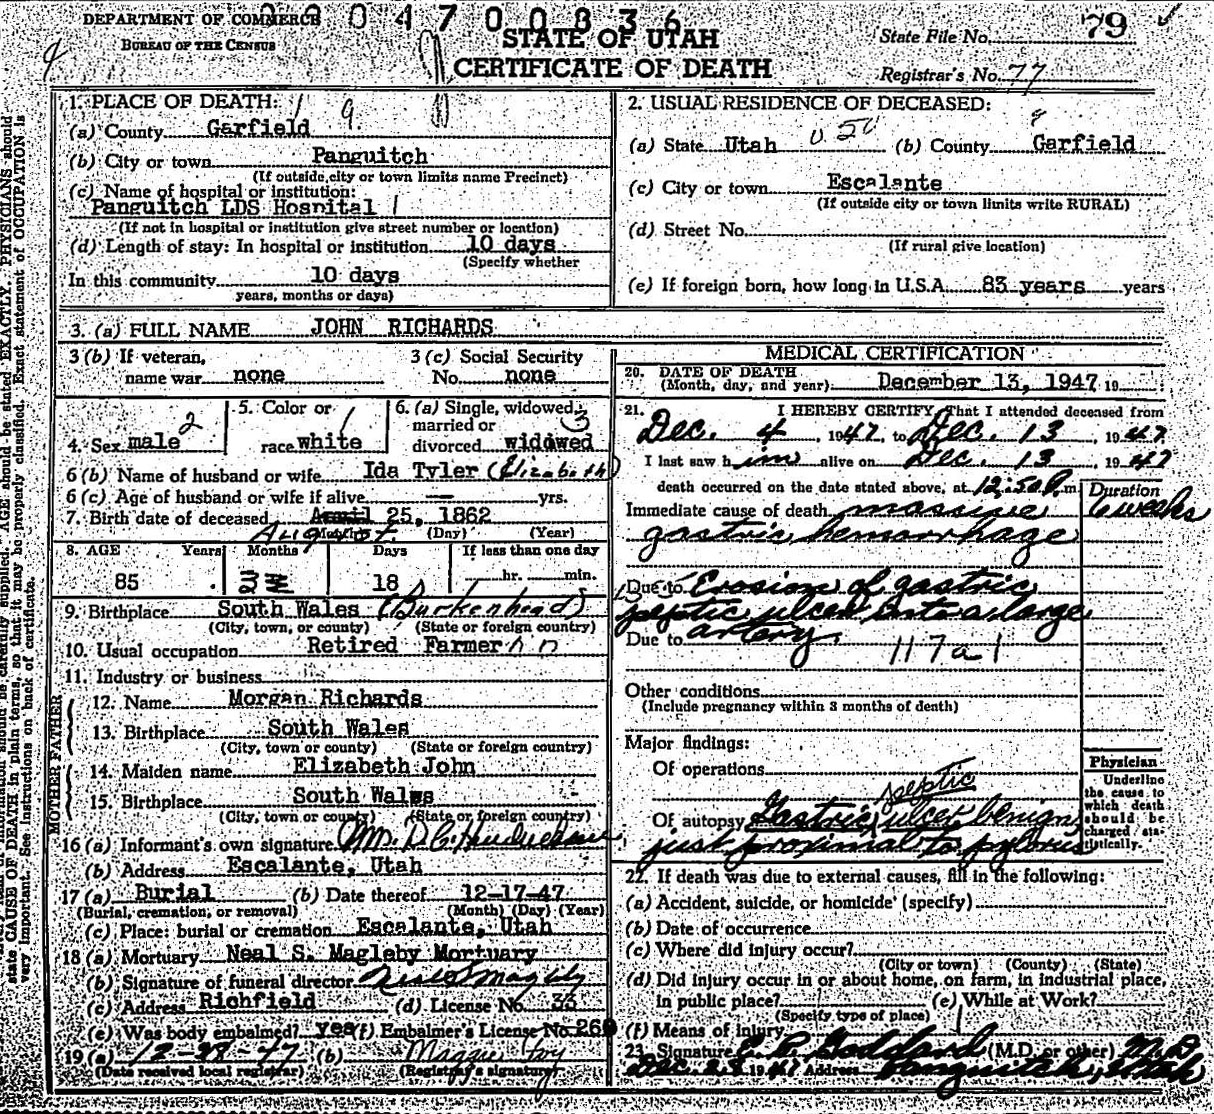 DEPARTMENT OF COMMERCE
BUREAU OF THE CENSUS
004700836
STATE OF UTAH
CERTIFICATE OF DEATH
State File No. 79
Registrar's No. 77
1. PLACE OF DEATH:
(a) County Garfield
(b) City or town Panguitch
(If outside city or town limits name Precinct)
(c) Name of hospital or institution:
Panguitch LDS Hospital
(If not in hospital or institution give street number or location)
(d) Length of stay: In hospital or institution 10 days
(Specify whether
In this community 10 days
years, months or days)
2. USUAL RESIDENCE OF DECEASED:
(a) State Utah 050 (b) County Garfield
(c) City or town Escalante
(If outside city or town limits write RURAL)
(d) Street No.
(If rural give location)
(e) If foreign born, how long in U.S.A. 83 years years
3. (a) FULL NAME JOHN RICHARDS
3 (b) If veteran, name war none
3 (c) Social Security No. none
4. Sex male 2
5. Color or race white 1
6. (a) Single, widowed, married or divorced widowed 3
6 (b) Name of husband or wife Ida Tyler (Elizabeth)
6 (c) Age of husband or wife if alive — yrs.
7. Birth date of deceased April 25, 1862
August
(Month) (Day) (Year)
8. AGE Years Months Days If less than one day
85 3 18 hr. min.
9. Birthplace South Wales (Burkenhead)
(City, town, or county) (State or foreign country)
10. Usual occupation Retired Farmer
11. Industry or business
FATHER
12. Name Morgan Richards
13. Birthplace South Wales
(City, town or county) (State or foreign country)
MOTHER
14. Maiden name Elizabeth John
15. Birthplace South Wales
(City, town or county) (State or foreign country)
16 (a) Informant's own signature
(b) Address Escalante, Utah
17 (a) Burial (b) Date thereof 12-17-47
(Burial, cremation, or removal) (Month) (Day) (Year)
(c) Place: burial or cremation Escalante, Utah
18 (a) Mortuary Neal S. Magleby Mortuary
(b) Signature of funeral director Neal S Magleby
(c) Address Richfield (d) License No. 33
(e) Was body embalmed? yes (f) Embalmer's License No. 260
19 (a) 12-28-47 (b) Maggie Foy
(Date received local registrar) (Registrar's signature)
MEDICAL CERTIFICATION
20. DATE OF DEATH
(Month, day, and year) December 13, 1947 19
21. I HEREBY CERTIFY, That I attended deceased from
Dec. 4, 1947, to Dec. 13, 1947
I last saw h im alive on Dec. 13, 1947
death occurred on the date stated above, at 12:50 P.m.
Duration
Immediate cause of death massive 6 weeks
gastric hemorrhage
Due to Erosion of gastric
peptic ulcer into a large
Due to artery. 117a1
Other conditions
(Include pregnancy within 3 months of death)
Major findings:
Of operations
peptic
Of autopsy Gastric ulcer benign
just proximal to pylorus
Physician
Underline
the cause to
which death
should be
charged sta-
tistically.
22. If death was due to external causes, fill in the following:
(a) Accident, suicide, or homicide (specify)
(b) Date of occurrence
(c) Where did injury occur?
(City or town) (County) (State)
(d) Did injury occur in or about home, on farm, in industrial place,
in public place? (e) While at Work?
(Specify type of place)
(f) Means of injury
23. Signature Goddard (M.D. or other) M.D.
Dec. 1947 Address Panguitch, Utah
AGE should be stated EXACTLY. PHYSICIANS should
state CAUSE OF DEATH in plain terms, so that it may be properly classified. Exact statement of OCCUPATION is
very important. See instructions on back of certificate.